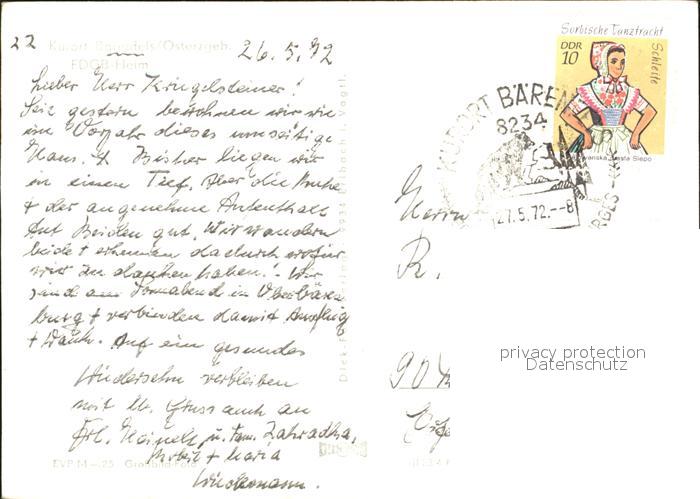 22
Kurort Bärenfels/Osterzgeb.
FDGB-Heim
26.5.72
Lieber Herr Kringelsteiner!
Seit gestern bewohnen wir wie
im Vorjahr dieses umseitige
Haus. Bisher liegen wir
in einem Tief. Aber die Ruhe
+ der angenehme Aufenthalt
tut Beiden gut. Wir wandern
beide + erkennen dadurch wofür
wir zu danken haben. Wir
sind am Sonnabend in Oberbären
burg + verbinden damit Ausflug
+ Auf ein gesundes
Wiedersehn verbleiben
mit lb. Gruss auch an
Frl. u. Fam. Zahradka,
+ Maria
Wiedemann.
EVP M -.25 Großbild-Foto
Sorbische Tanztracht
Schleife
DDR
10
Serbska drasta Slepo
KURORT BÄREN
8234
27.5.72.--8
Herrn
R.
90
privacy protection
Datenschutz